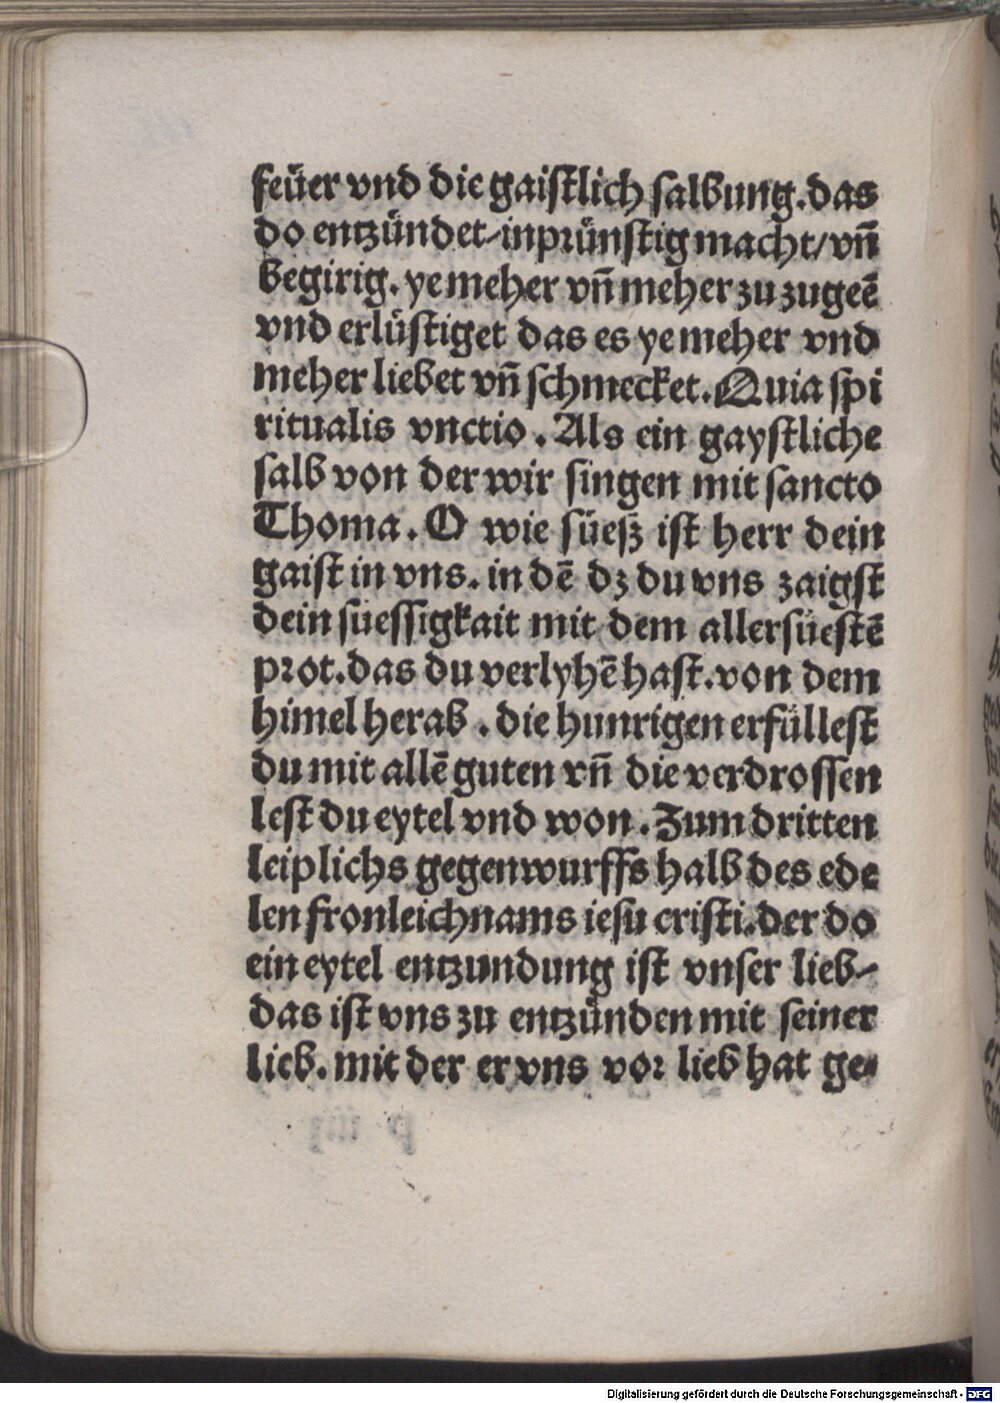 feüer vnd die gaistlich salbung.das
do entzündet/inprünstig macht/vn̄
begirig. ye meher vn̄ meher zu zugeē
vnd erlüstiget das es ye meher vnd
meher liebet vn̄ schmecket. Quia spi
ritualis vnctio. Als ein gaystliche
salb von der wir singen mit sancto
Thoma. O wie süeß ist herr dein
gaist in vns. in dē dz du vns zaigst
dein suessigkait mit dem allersüestē
prot.das du verlyhē hast.von dem
himel herab. die hunrigen erfüllest
du mit allē guten vn̄ die verdrossen
lest du eytel vnd won. Zum dritten
leiplichs gegenwurffs halb des ede
len fronleichnams iesu cristi.der do
ein eytel entzundung ist vnser lieb/
das ist vns zu entzünden mit seiner
lieb. mit der er vns vor lieb hat ge⸗
Digitalisierung gefördert durch die Deutsche Forschungsgemeinschaft - DFG